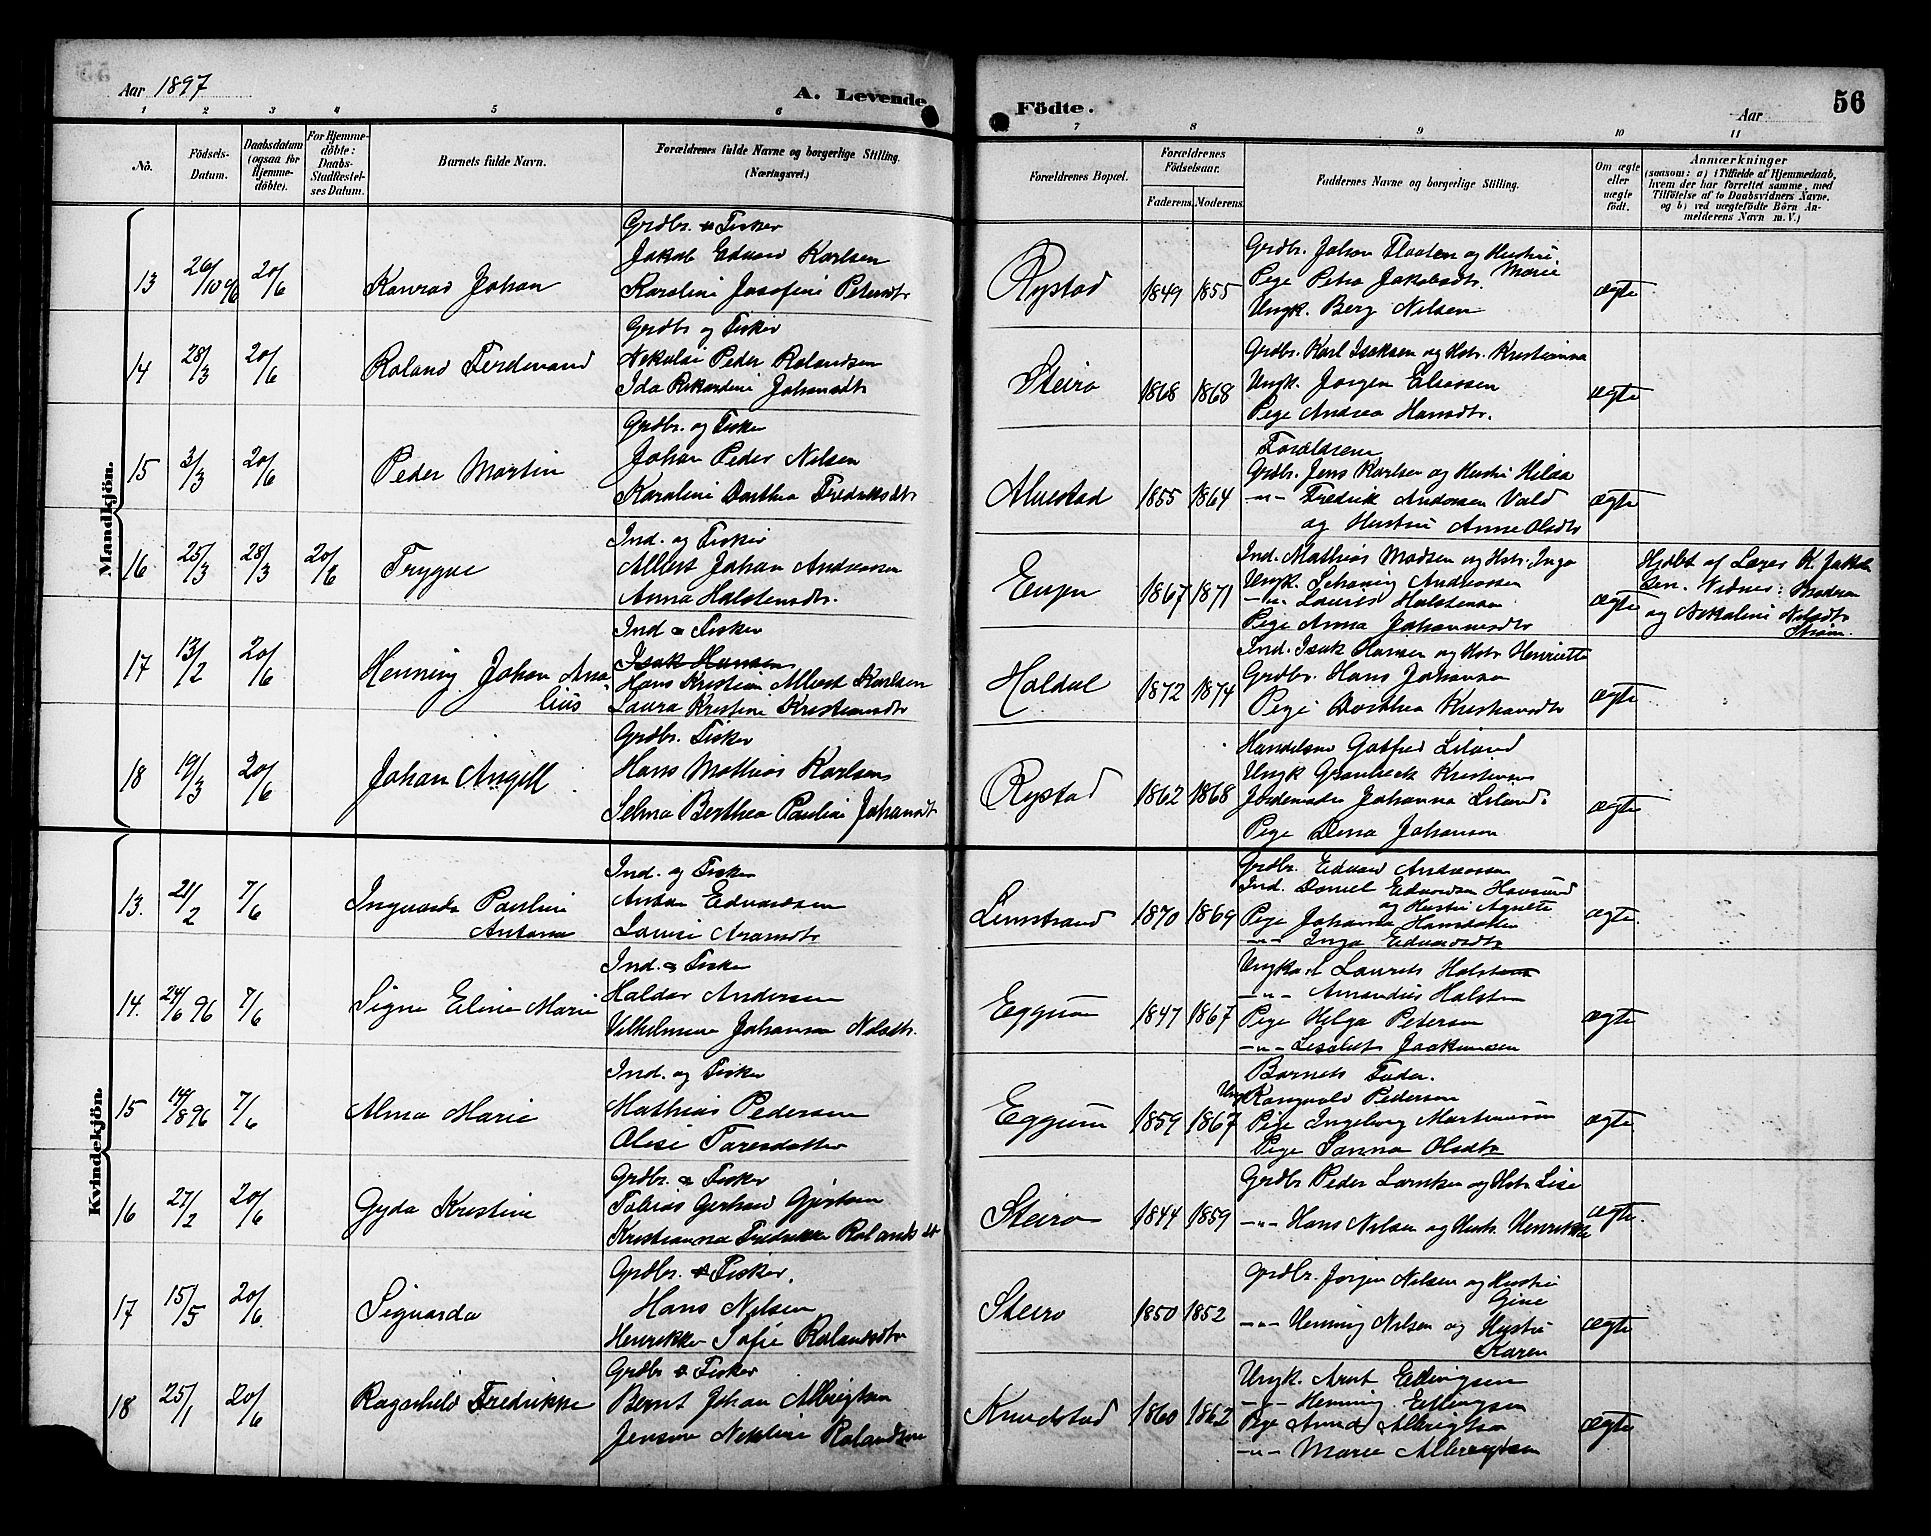 Aar 1897
A. Levende
Födte.
Aar
56
1 2 3 4 5 6 7 8 9 10 11
No.
Födsels-Datum.
Daabsdatum (ogsaa for Hjemme-döbte).
For Hjemme-döbte: Daabs-Stadfæstel-ses Datum.
Barnets fulde Navn.
Forældrenes fulde Navne og borgerlige Stilling. (Næringsvei.)
Forældrenes Bopæl.
Forældrenes Födselsaar.
Faderens. Moderens.
Faddernes Navne og borgerlige Stilling.
Om ægte eller uægte födt.
Anmærkninger
(saasom: a) i Tilfælde af Hjemmedaab,
hvem der har forrettet samme, med
Tilföielse af to Daabsvidners Navne.
og b) ved uægtefödte Börn An-
melderens Navn m. V.)
Mandkjön.
13 26/10 96 20/6 Konrad Johan
Grdbr. & Fisker
Jakob Edvard Karlsen
Karoline Josefine Petersdtr
Rystad 1849 1855
Grdbr. Johan Flaaten og Hustru
Marie
Pige Petra Jakobsdtr.
Ungk. Berg Nilsen
ægte
14 28/3 20/6 Roland Ferdinand
Grdbr og Fisker
Nikolai Peder Rolandsen
Ida Rikardine Johansdtr
Steiro 1868 1868
Grdbr. Karl Isaksen og Hstr. Kristianna
Ungk. Jorgen Eliassen
Pige Andrea Hansdtr.
ægte
15 3/3 20/6 Peder Martin
Grdbr. og Fisker
Johan Peder Nilsen
Karoline Dorthea Fredriksdtr
Alvestad 1855 1864
Forældrene
Grdbr. Jens Karlsen og Hustru Hilda
-"- Fredrik Andersen Vold
og Hustru Anne Olsdtr
ægte
16 25/3 28/3 20/6 Trygve
Ind. og Fisker
Albert Johan Andreassen
Anna Halstensdtr.
Eugen 1867 1871
Ind. Mathias Madsen og Hstr. Inga
Ungk. Andreassen
-"- Laurits Halstensen
Pige Anna Johannesdtr
ægte
Hjdbt af Lærer K. Jakob
sen. Vidner:
og Nikoline Nilsdtr
Strøm.
17 13/2 20/6 Henning Johan Ama-
lius
Ind & Fisker
Isak Hansen
Hans Kristian Albert Karlsen
Laura Kristine Kristiansdtr
Holdal 1872 1874
Ind. Isak Hansen og Hstr Henriette
Grdbr. Hans Johansen
Pige Dorthea Kristiansdtr
ægte
18 19/3 20/6 Johan Angell
Grdbr. Fisker
Hans Mathias Karlsen
Selma Berthea Pauline Johansdtr
Rystad 1862 1868
Handelsm Gotfred Liland
Ungk Grønbeck Kristensen
Jordemoder Johanna Liland.
Pige Dina Johansen
ægte
Kvindekjön.
13. 21/2 7/6 Ingvarda Pauline
Antona
Ind. og Fisker
Anton Edvardsen
Lovise Aronsdtr
Limstrand 1870 1869
Grdbr. Edvard Andreassen
Ind. Daniel Edvardsen Hovsund
og Hustru Agnete
Pige Johanna Hansdatter
-"- Inga Edvardsdtr
ægte.
14. 24/6 96 7/6 Signe Eline Marie
Ind. & Fisker
Haldor Andersen
Vilhelmine Johanson Nilsdtr.
Eggum 1847 1867
Ungkarl Laurits Halstensen
-"- Amandus Halsten
Pige Helga Petersen
-"- Lisebet Joakimsen
ægte
15 14/8 96 7/6 Alma Marie
Ind. og Fisker
Mathias Pedersen
Olise Taresdatter
Eggum 1859 1867
Barnets Fader.
Ungk Rangvald Pedersen
Pige Ingeborg Martinussen
Pige Sanna Olsdtr
ægte
16 27/2 20/6 Gyda Kristine
Grdbr. & Fisker
Tobias Gerhard Gjertsen
Kristianna Fredrikke Rolandsdtr
Steiro 1844 1859
Grdbr Peder Larntsen og Hstr. Lise
-"- Hans Nilsen og Hustr. Henrikke
ægte.
17 15/5 20/6. Sigvarda
Grdbr. & Fisker.
Hans Nilsen
Henrikke Sofie Rolandsdtr
Steiro 1850 1852
Grdbr. Jorgen Nilsen og Hustru
Gine
-"- Henning Nilsen og Hustru
Karen
ægte
18 25/1 20/6 Ragnhild Fredrikke
Grdbr & Fisker
Bernt Johan Albrigtsen
Jensine Nikoline Rolandsen
Knudstad 1860 1862
Ungk. Arnt Ellingsen
-"- Henning Ellingsen
Pige Anna Albrigtsen
-"- Marie Albrigtsen
ægte